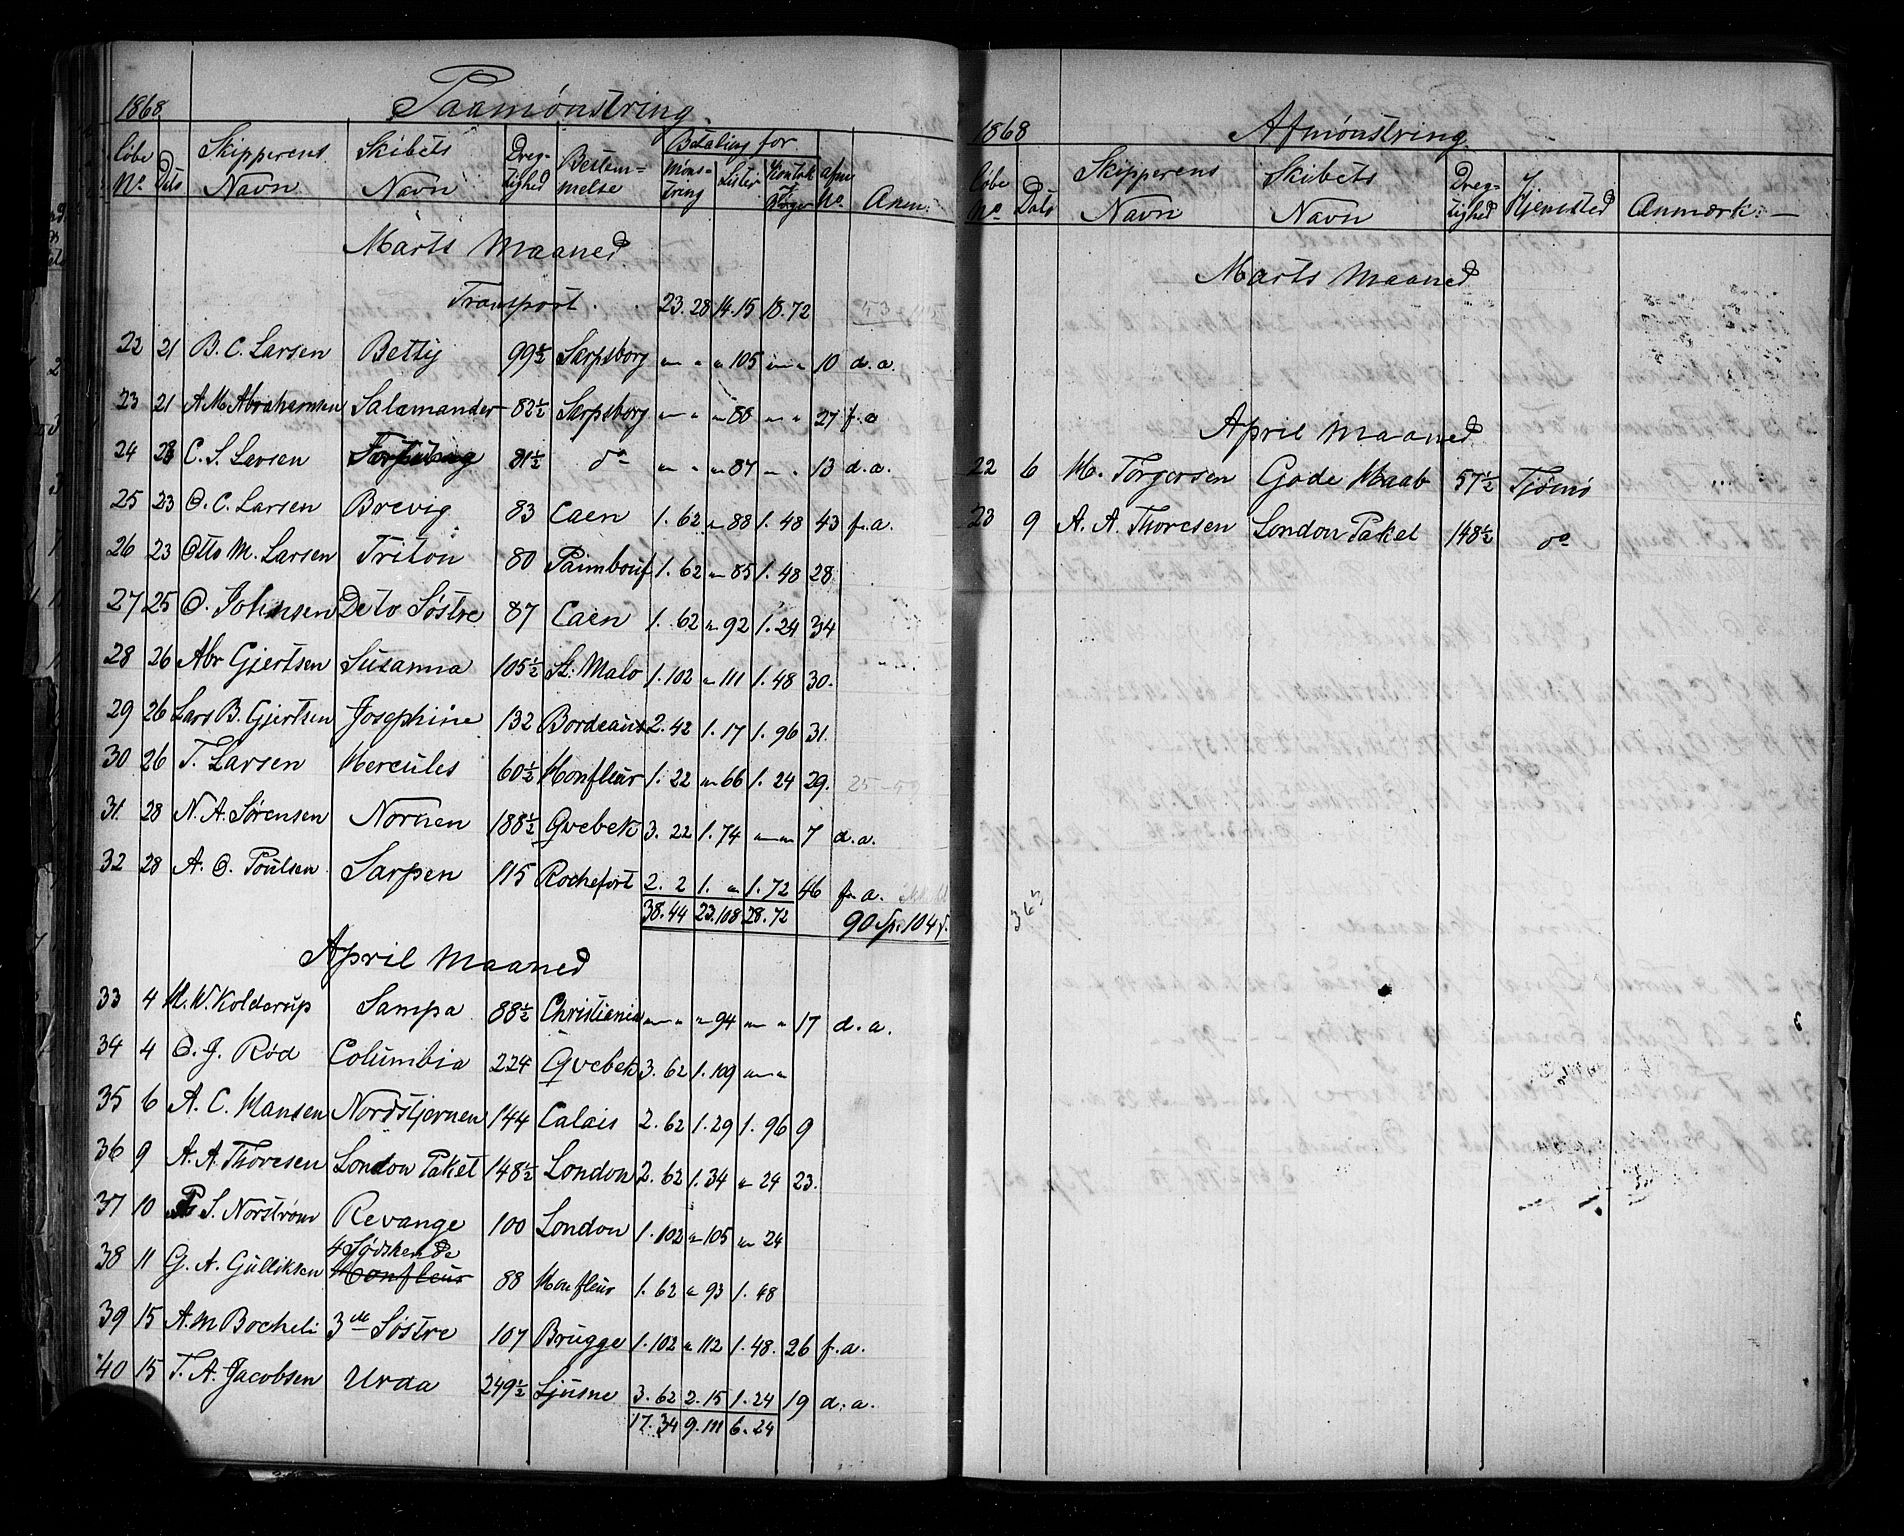 1868 Paamønstring.
Løbe No. Dato Skipperens Navn Skibets Navn Dreg-tighed Bestem=melse Betaling for Møns-tring Lister afm No. Anm:
Marts Maaned
Transport. 23.28 14.15 18.72
22 21 B. C. Larsen Betty 99½ Sarpsborg " " " 105 " " 10 d. a.
23 21 A M Abrahamsen Salamander 82½ Sarpsborg " " " 88 " " 27 f. a
24 C. S. Larsen 81½ do " " " 87 " " 13 d. a.
25 23 O. C. Larsen Brevig 83 Caen 1. 62 " 88 1. 48 43 f. a.
26 23 Otto M. Larsen Triton 80 Paimbouf 1. 62 " 85 1. 48 28.
27 25 O. Johnsen De to Søstre 87 Caen 1. 62 " 92 1. 24 34
28 26 Abr Gjertsen Susanna 105½ St. Malo 1. 102 " 111 1. 48 30.
29 26 Lars B. Gjertsen Josephine 132 Bordeaux 2. 42 1. 17 1. 96 31.
30 26 T. Larsen Hercules 60½ Honfleur 1. 22 " 66 1. 24 29.
31 28 N. A. Sørensen Nornen 188½ Qvebek 3. 22 1. 74 " " 7 d. a.
32 28 A. O. Poulsen Sarpen 115 Rochefort 2. 2 1. " 1. 72 46 f. a.
38. 44 23. 108 28. 72 90 Sp. 104 s.
April Maaned
33 4 H. W. Kolderup Sampa 88½ Christiania " " " 94 " " 17 d. a.
34 4 O. J. Rød Columbia 224 Qvebek 3. 62 1. 109 " "
35 6 A. C. Hansen Nordstjernen 144 Calais 2. 62 1. 29 1. 96 9
36 9 A. A. Thoresen London Paket 148½ London 2. 62 1. 34 " 24 23.
37 10 S. Norstrøm Revange 100 London 1. 102 " 105 " 24
38 11 G. A. Gulliksen 4 Sødskende Honfleur 88 Honfleur 1. 62 " 93 1. 48
39 15 A. M Bocheli 3de Søstre 107 Brugge 1. 102 " 112 1. 48. 26 f. a.
40 15 T. A. Jacobsen Urda 249½ Ljusne 3. 62 2. 15 1. 24 19 d. a.
17. 34 9. 111 6. 24
1868 Afmønstring
Løbe No Dato Skipperens Navn Skibets Navn Dreg-tighed Hjemsted Anmærk:
Marts Maaned
April Maaned
22 6 H. Torgersen Gode Haab 57½ Tjømø
23 9 A. A. Thoresen London Paket 148½ do